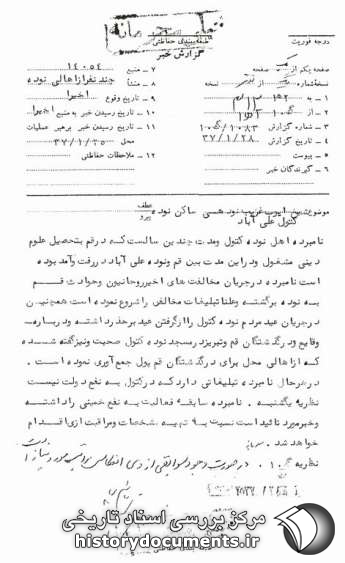 طبقه بندی حفاظتی
گزارش خبر
درجه فوریت
صفحه یکم از صفحه
نسخه شماره از نسخه
۱ - به
۲ - از
۳ - شماره گزارش ۱۰۸۳
۴ - تاریخ گزارش ۳۷/۱/۲۸
۵ - پیوست
۶ - گیرندگان خبر
۷ - منبع ۱۴۰۵۴
۸ - منشأ چند نفر از اهالی نوده
۹ - تاریخ وقوع اخیرا
۱۰ - تاریخ رسیدن خبر به منبع اخیرا
۱۱ - تاریخ رسیدن خبر برهبر عملیات
محل ۳۷/۱/۲۵
۱۲ - ملاحظات حفاظتی
موضوع شیخ ایوب غریب نوده‌ئی ساکن نوده
عطف
پیرو
کتول علی آباد
نامبرده اهل نوده کتول ومدت چندین سالیست که در قم بتحصیل علوم
دینی مشغول ودراین مدت بین قم ونوده علی آباد دررفت وآمد بوده
است نامبرده درجریان مخالفت های اخیرروحانیون وحوادث قم
به نوده برگشته وظنا تبلیغات مخالفی راشروع نموده است همچنین
درجریان عید مردم نوده کتول راازگرفتن عید برحذرداشته ودرباره
وقایع ودرگذشتگان قم وتبریزد رمسجد نوده کتول صحبت ونیزگفته شده
که ازاهالی محل برای درگذشتگان قم پول جمع آوری نموده است .
درهرحال نامبرده تبلیغاتی دارد که درکتول به نفع دولت نیست
نظریه یکشنبه . نامبرده سابقه فعالیت به نفع خمینی راداشته
وخبرمورد تائید است نسبت به تهیه مشخصات ومراقبت ازوی اقدام
خواهد شد .
نظریه
مرکز بررسی اسناد تاریخی
historydocuments.ir